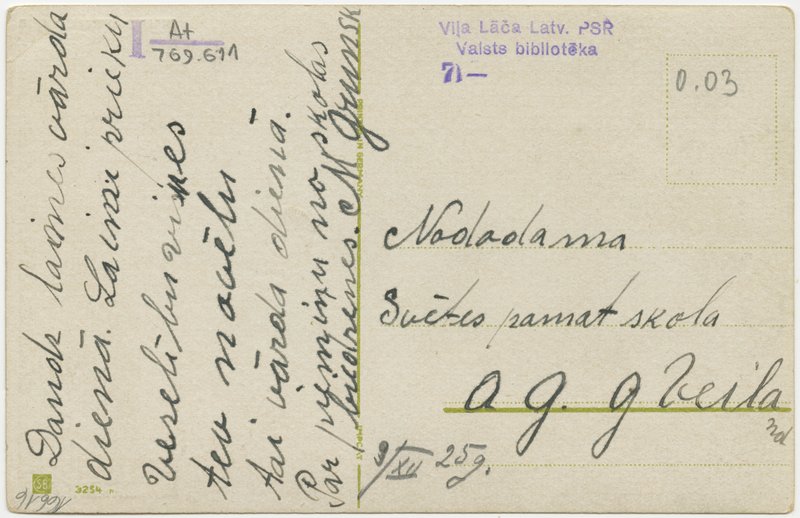 Daudz laimes vārda
dienā. Laimi prieku
Veselību vi es
tev novēlu
tai vārda dienā.
Par piemiņu no skolas
biedrenes. M Grunsk
I At
769.611
Viļa Lāča Latv. PSR
Valsts bibliotēka
71—
0.03
Nododama
Svētes pamat skola
a g. g Veila
9/XII 25g.
SB 3254